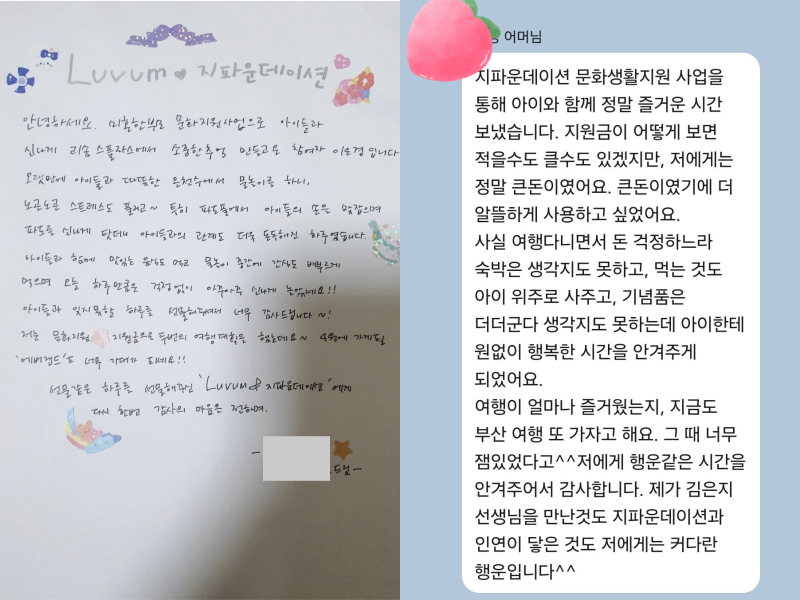 Luvum♥지파운데이션
안녕하세요. 미혼한부모 문화지원사업으로 아이들과
신나게 리솜 스플라스에서 소중한추억 만들고온 참여자 입니다
오랫만에 아이들과 따뜻한 온천수에서 물놀이를 하니,
노곤노곤 스트레스도 풀리고~ 특히 파도풀에서 아이들의 손을 맞잡으며
파도를 신나게 탓더니 아이들과의 관계도 더욱 돈독해진 하루였습니다.
아이들과 함께 맛있는 음식도 먹고 물놀이 중간에 간식도 배부르게
먹으며 오늘 하루만큼은 걱정없이 아주아주 신나게 놀았네요!!
아이들과 잊지못할 하루를 선물해주셔서 너무 감사드립니다~!
저는 문화지원 지원금으로 두번의 여행계획을 했는데요~ 4월에 가게될
'에버랜드'도 너무 기대가 되네요!!
선물같은 하루를 선물해주신 'Luvum & 지파운데이션'에게
다시 한번 감사의 마음을 전하며.
- 드림-
어머님
지파운데이션 문화생활지원 사업을
통해 아이와 함께 정말 즐거운 시간
보냈습니다. 지원금이 어떻게 보면
적을수도 클수도 있겠지만, 저에게는
정말 큰돈이였어요. 큰돈이였기에 더
알뜰하게 사용하고 싶었어요.
사실 여행다니면서 돈 걱정하느라
숙박은 생각지도 못하고, 먹는 것도
아이 위주로 사주고, 기념품은
더더군다 생각지도 못하는데 아이한테
원없이 행복한 시간을 안겨주게
되었어요.
여행이 얼마나 즐거웠는지, 지금도
부산 여행 또 가자고 해요. 그 때 너무
잼있었다고^^저에게 행운같은 시간을
안겨주어서 감사합니다. 제가 김은지
선생님을 만난것도 지파운데이션과
인연이 닿은 것도 저에게는 커다란
행운입니다^^